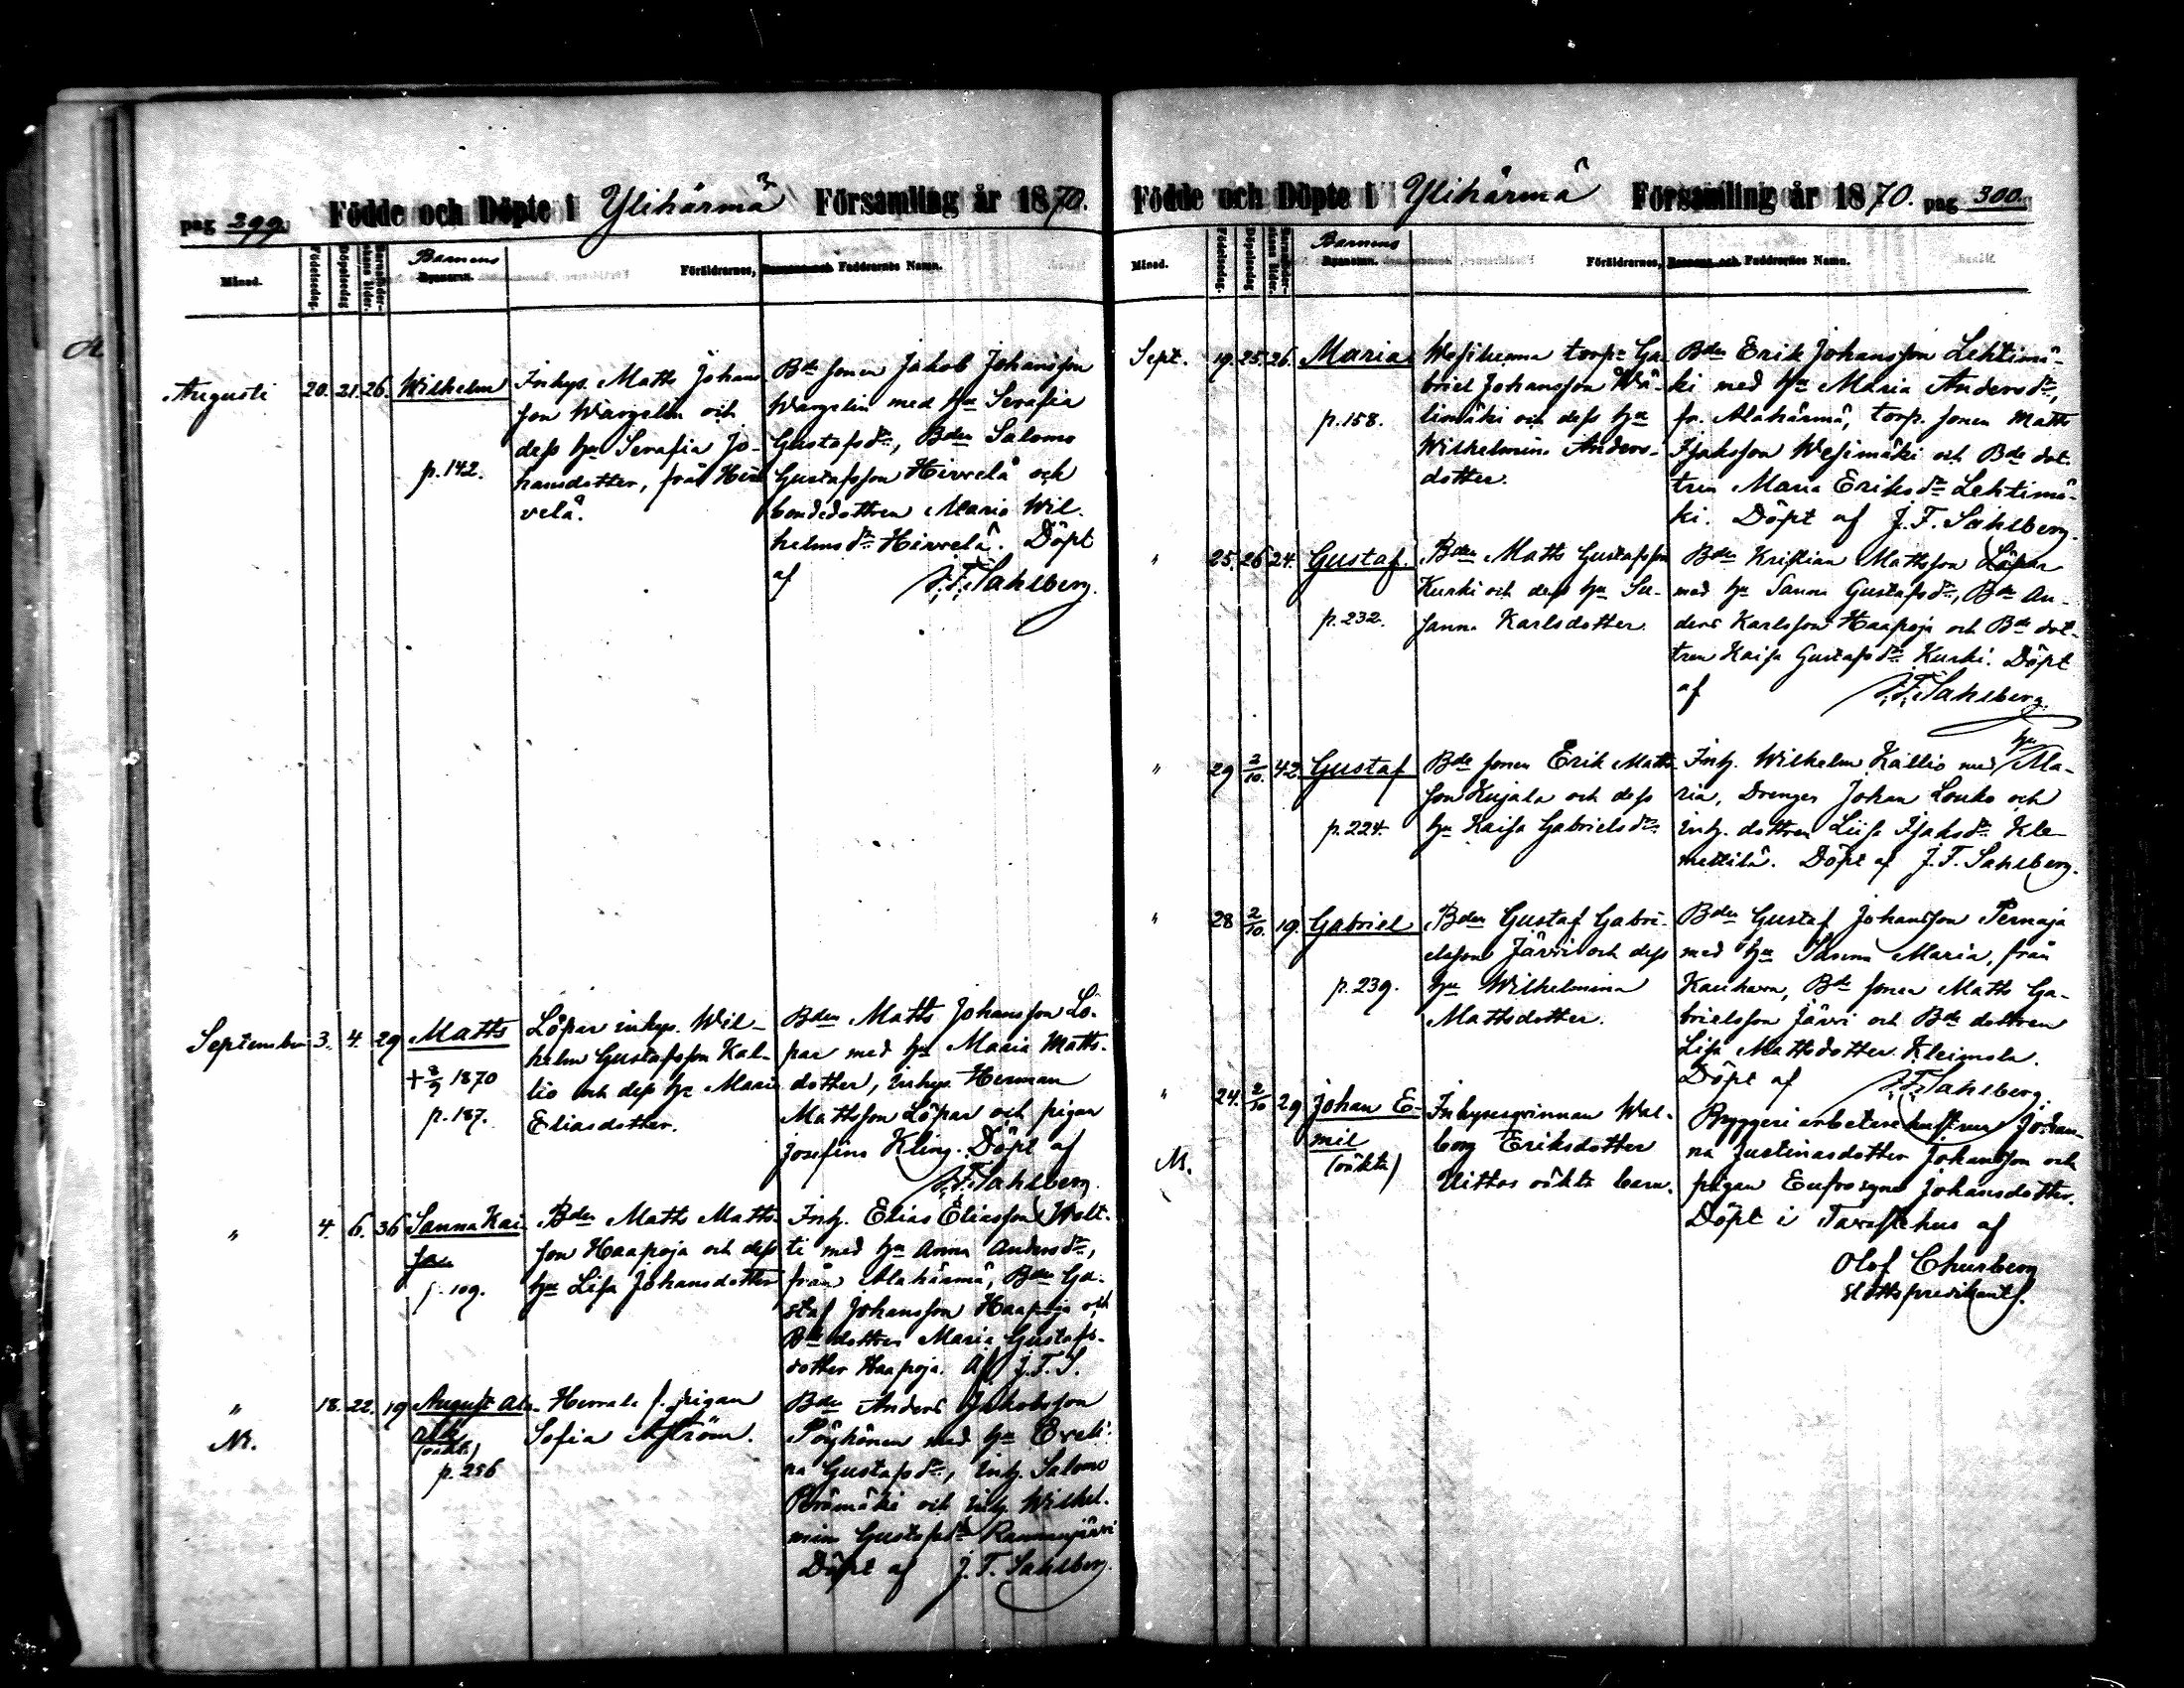 pag 299. Födde och Döpte i Ylihärmä Församling år 1870.
Månad. Födelsedag. Döpelsedag Barnaföderskans ålder. Barnens Byanamn. Föräldrarnes, Barnens och Faddrarnes Namn.
Augusti 20. 21. 26. Wilhelm
p. 142.
Inhys. Matts Johans
son Wargelin och
dess hu Serafia Jo-
hansdotter, från Hir
velä.
Bde sonen Jakob Johansson
Wargelin med hu Serafia
Gustafsdr, Bden Salomo
Gustafsson Hirvelä och
bondedottren Maria Wil-
helmsdr Hirvelä. Döpt
af J. F. Sahlberg.
September 3. 4. 29 Matts
+ 8/9 1870
p. 187.
Löpar inhys. Wil-
helm Gustafsson Kal-
lio och dess hu Maria
Eliasdotter.
Bden Matts Johansson Lö-
par med hu Maria Matts-
dotter, inhys. Herman
Mattsson Löpar och pigan
Josefina Kling. Döpt af
J. F. Sahlberg.
" 4. 6. 36 Sanna Kai
sa
p. 109.
Bden Matts Matts-
son Haapoja och dess
hu Lisa Johansdotter
Inh. Elias Eliasson Wolt-
ti med hu Anna Andersdr,
från Alahärmä, Bden Gu-
staf Johansson Haapoja och
Bde dottren Maria Gustafs-
dotter Haapoja. Af J. F. S.
" 18. 22. 19 August
N.
(oäkt.)
p. 256
f. pigan
Sofia Åström.
Bden Anders Jakobsson
Pöyhönen med hu Eveli-
na Gustafsdr, inh. Salomo
och inh. Wilhel-
mina Gustafsdr
Döpt af J. F. Sahlberg.
Födde och Döpte i Ylihärmä Församling år 1870. pag 300.
Månad. Födelsedag. Döpelsedag Barnaföderskans ålder. Barnens Byanamn. Föräldrarnes, Barnens och Faddrarnes Namn.
Sept. 19. 25. 26. Maria
p. 158.
torp. Ga
briel Johansson Wä-
limäki och dess hu
Wilhelmina Anders-
dotter.
Bden Erik Johansson Lehtimä-
ki med hu Maria Andersdr,
fr. Alahärmä, torp. sonen Matts
Isaksson Wesimäki och Bde dot-
tren Maria Eriksdr Lehtimä-
ki. Döpt af J. F. Sahlberg.
" 25. 26 24. Gustaf.
p. 232.
Bden Matts Gustafsson
Kurki och dess hu Su-
sanna Karlsdotter.
Bden Kristian Mattsson Löpar
med hu Sanna Gustafsdr, Bde An-
ders Karlsson Haapoja och Bde dot-
tren Kaisa Gustafsdr Kurki. Döpt
af J. F. Sahlberg.
" 29 2/10. 42 Gustaf
p. 224.
Bde sonen Erik Matts-
son Kujala och dess
hu Kaisa Gabrielsdr
Inh. Wilhelm Kallio med hu Ma-
ria, Drengen Johan Louko och
inh. dottren Liisa Isaksdr Kle-
mettilä. Döpt af J. F. Sahlberg.
" 28 2/10. 19. Gabriel
p. 239.
Bden Gustaf Gabri-
elsson Järvi och dess
hu Wilhelmina
Mattsdotter.
Bden Gustaf Johansson Pernaja
med hu Sanna Maria, från
Kauhava, Bde sonen Matts Ga-
brielsson Järvi och Bde dottren
Lisa Mattsdotter Kleimola.
Döpt af J. F. Sahlberg.
" 24. 2/10 29 Johan E-
mil
(oäkta)
N.
Inhysesqvinnan Wal-
borg Eriksdotter
Uittos oäkta barn.
Bryggeri arbetare hustrun Johan-
na Justinasdotter Johansson och
pigan Eufrosyne Johansdotter.
Döpt i Tavastehus af
Olof Churberg
slottspredikant.